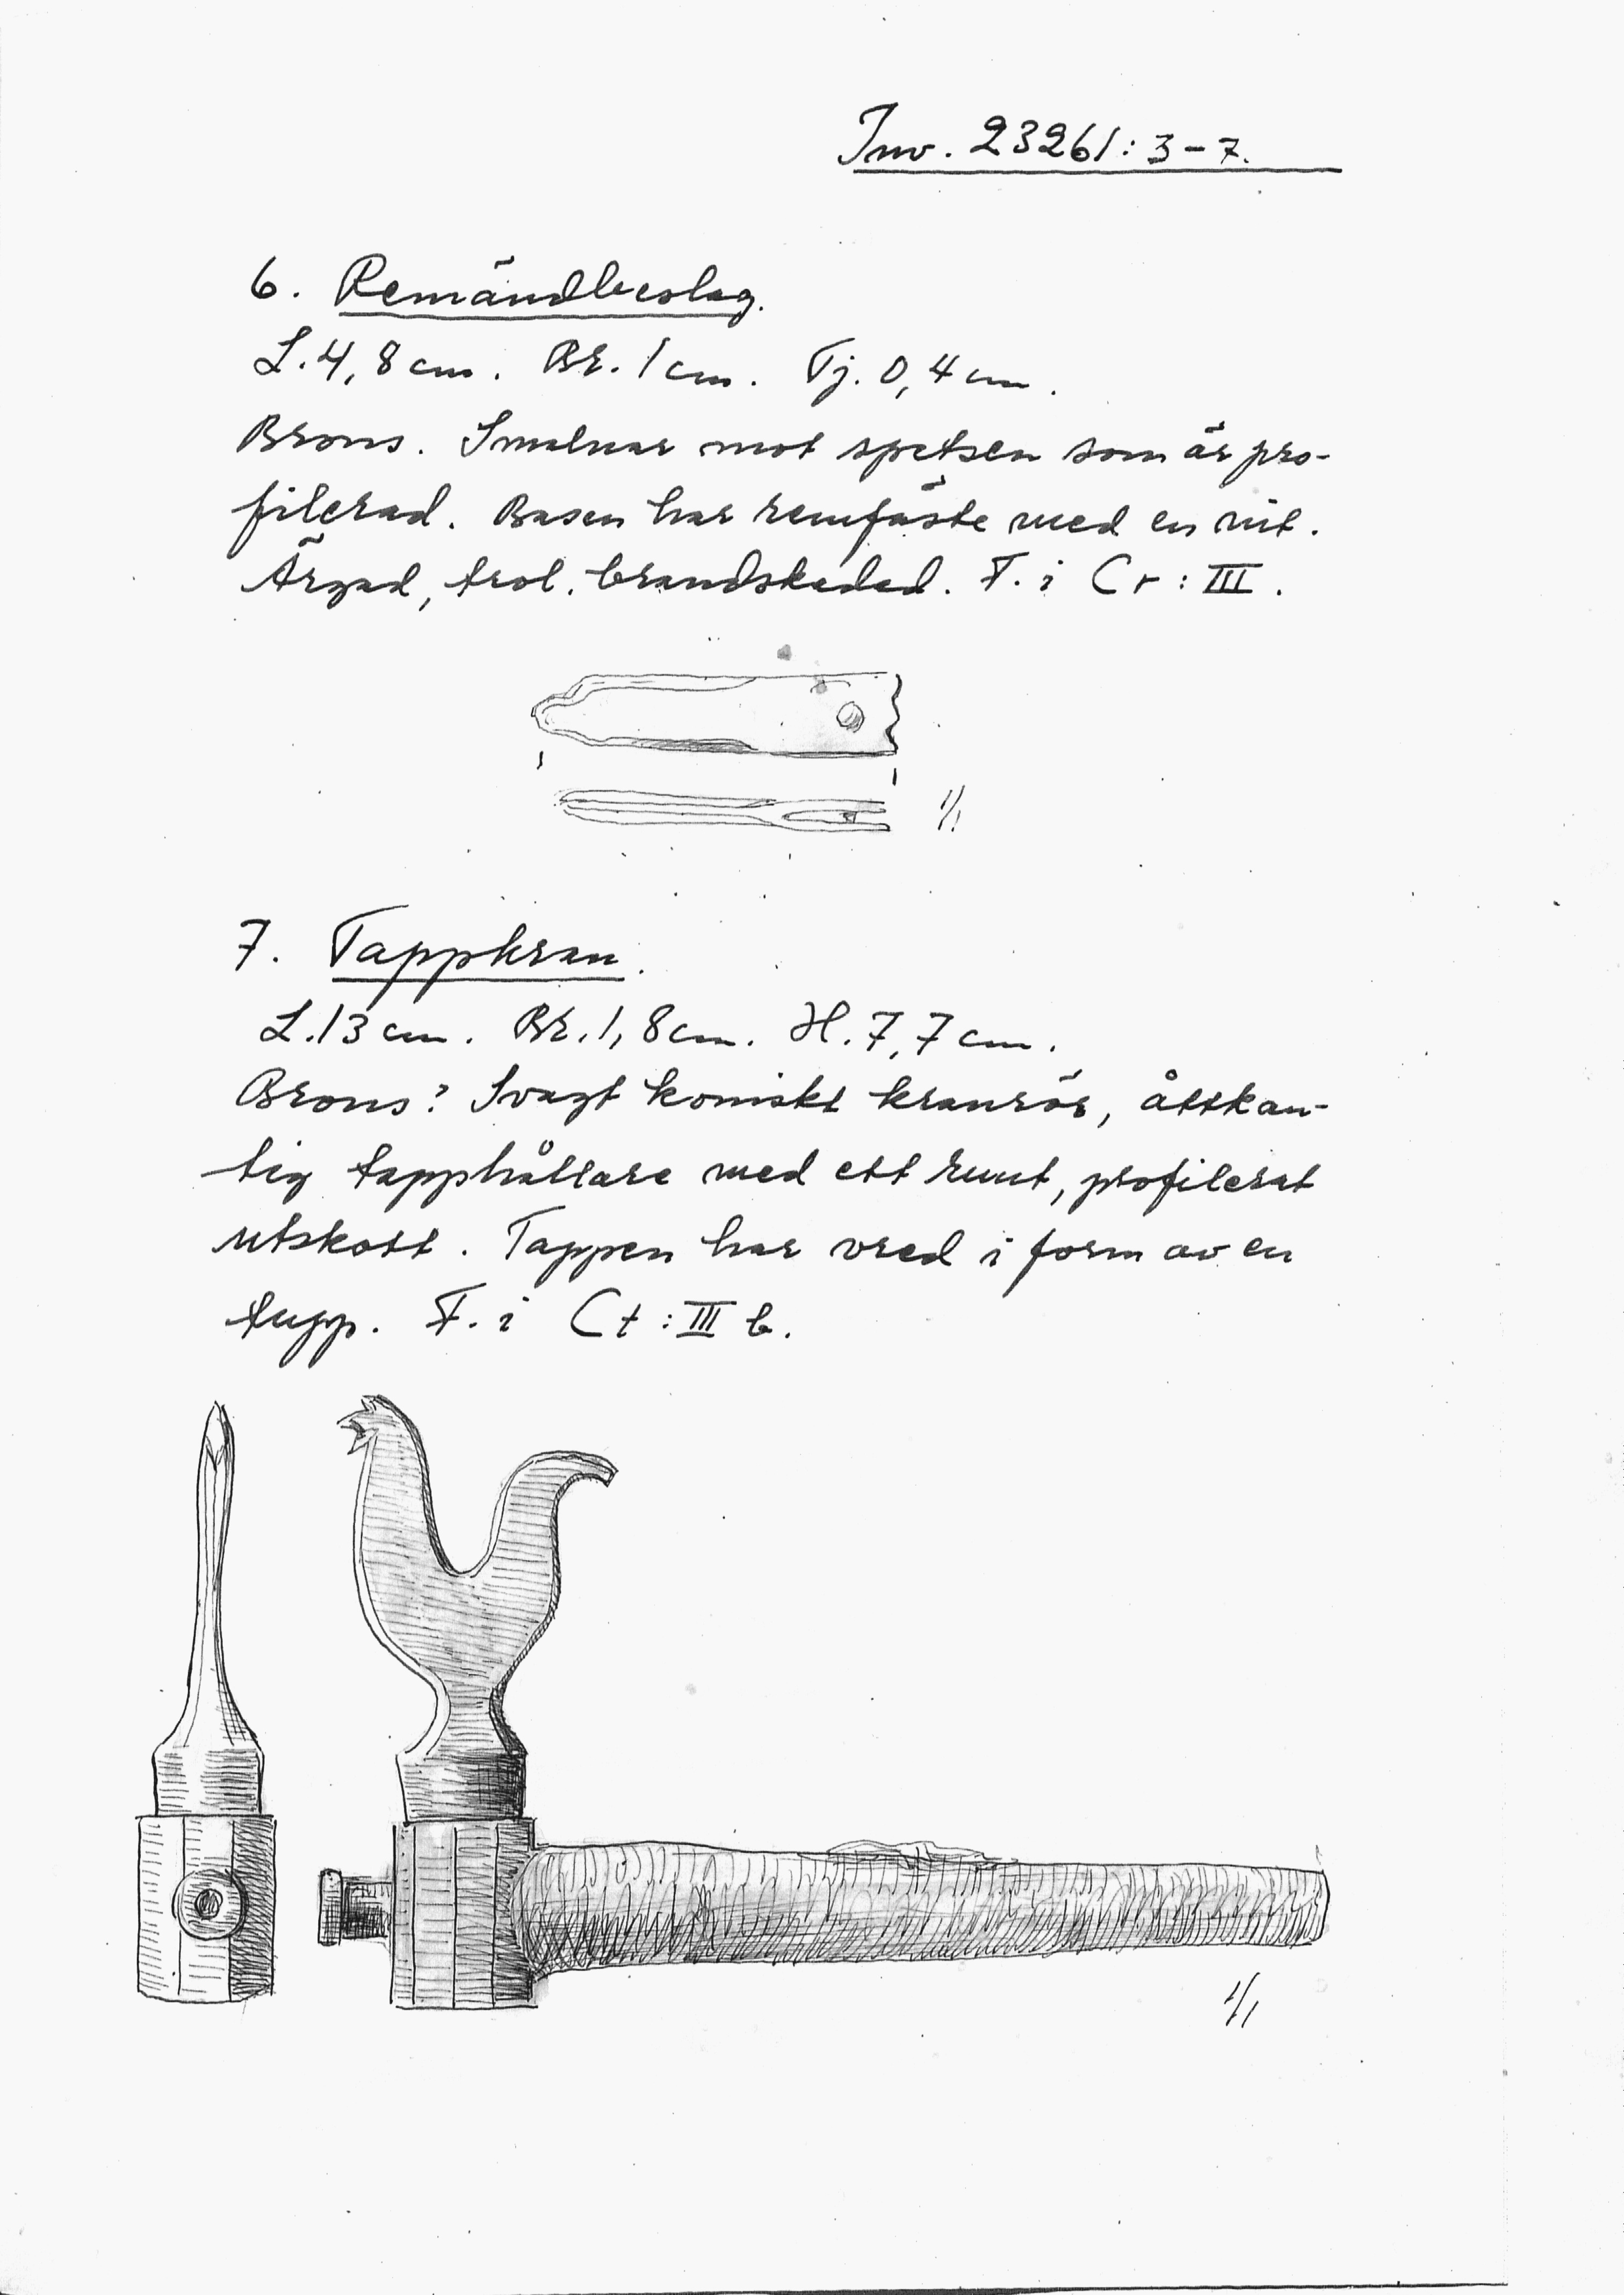 Inv. 23261:3-7.
6. Remändbeslag.
L.4,8cm. Br.1cm. Tj.0,4cm.
Brons. Smalnar mot spetsen som är pro-
filerad. Basen har remfäste med en nit.
Ärgad, trol. brandskadad. F.i Cr:III.
1/1
7. Tappkran.
L.13cm. Br.1,8cm. H.7,7cm.
Brons? Svagt koniskt kranrör, åttkan-
tig tapphållare med ett runt, profilerat
utskott. Tappen har vred i form av en
tupp. F.i Ct:III b.
1/1